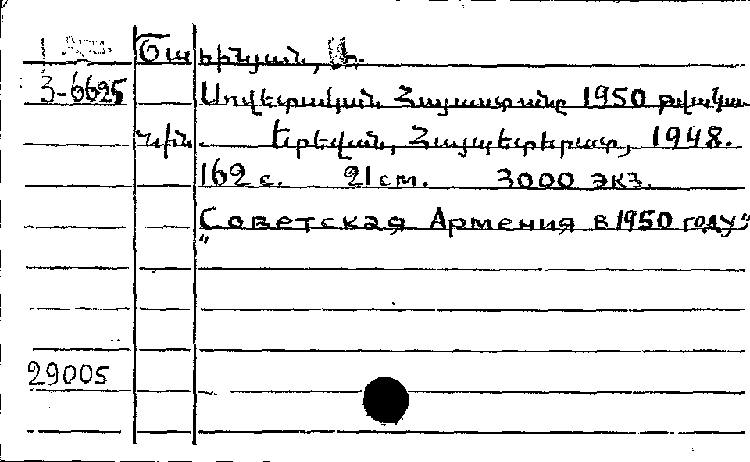 Ծատինյան, Ա.
3-6625 Սովետական Հայաստանը 1950 թվակա
նին. Երեվան, Հայպետհրատ, 1948.
162 с. 21 см. 3000 экз.
"Советская Армения в 1950 году"
29005